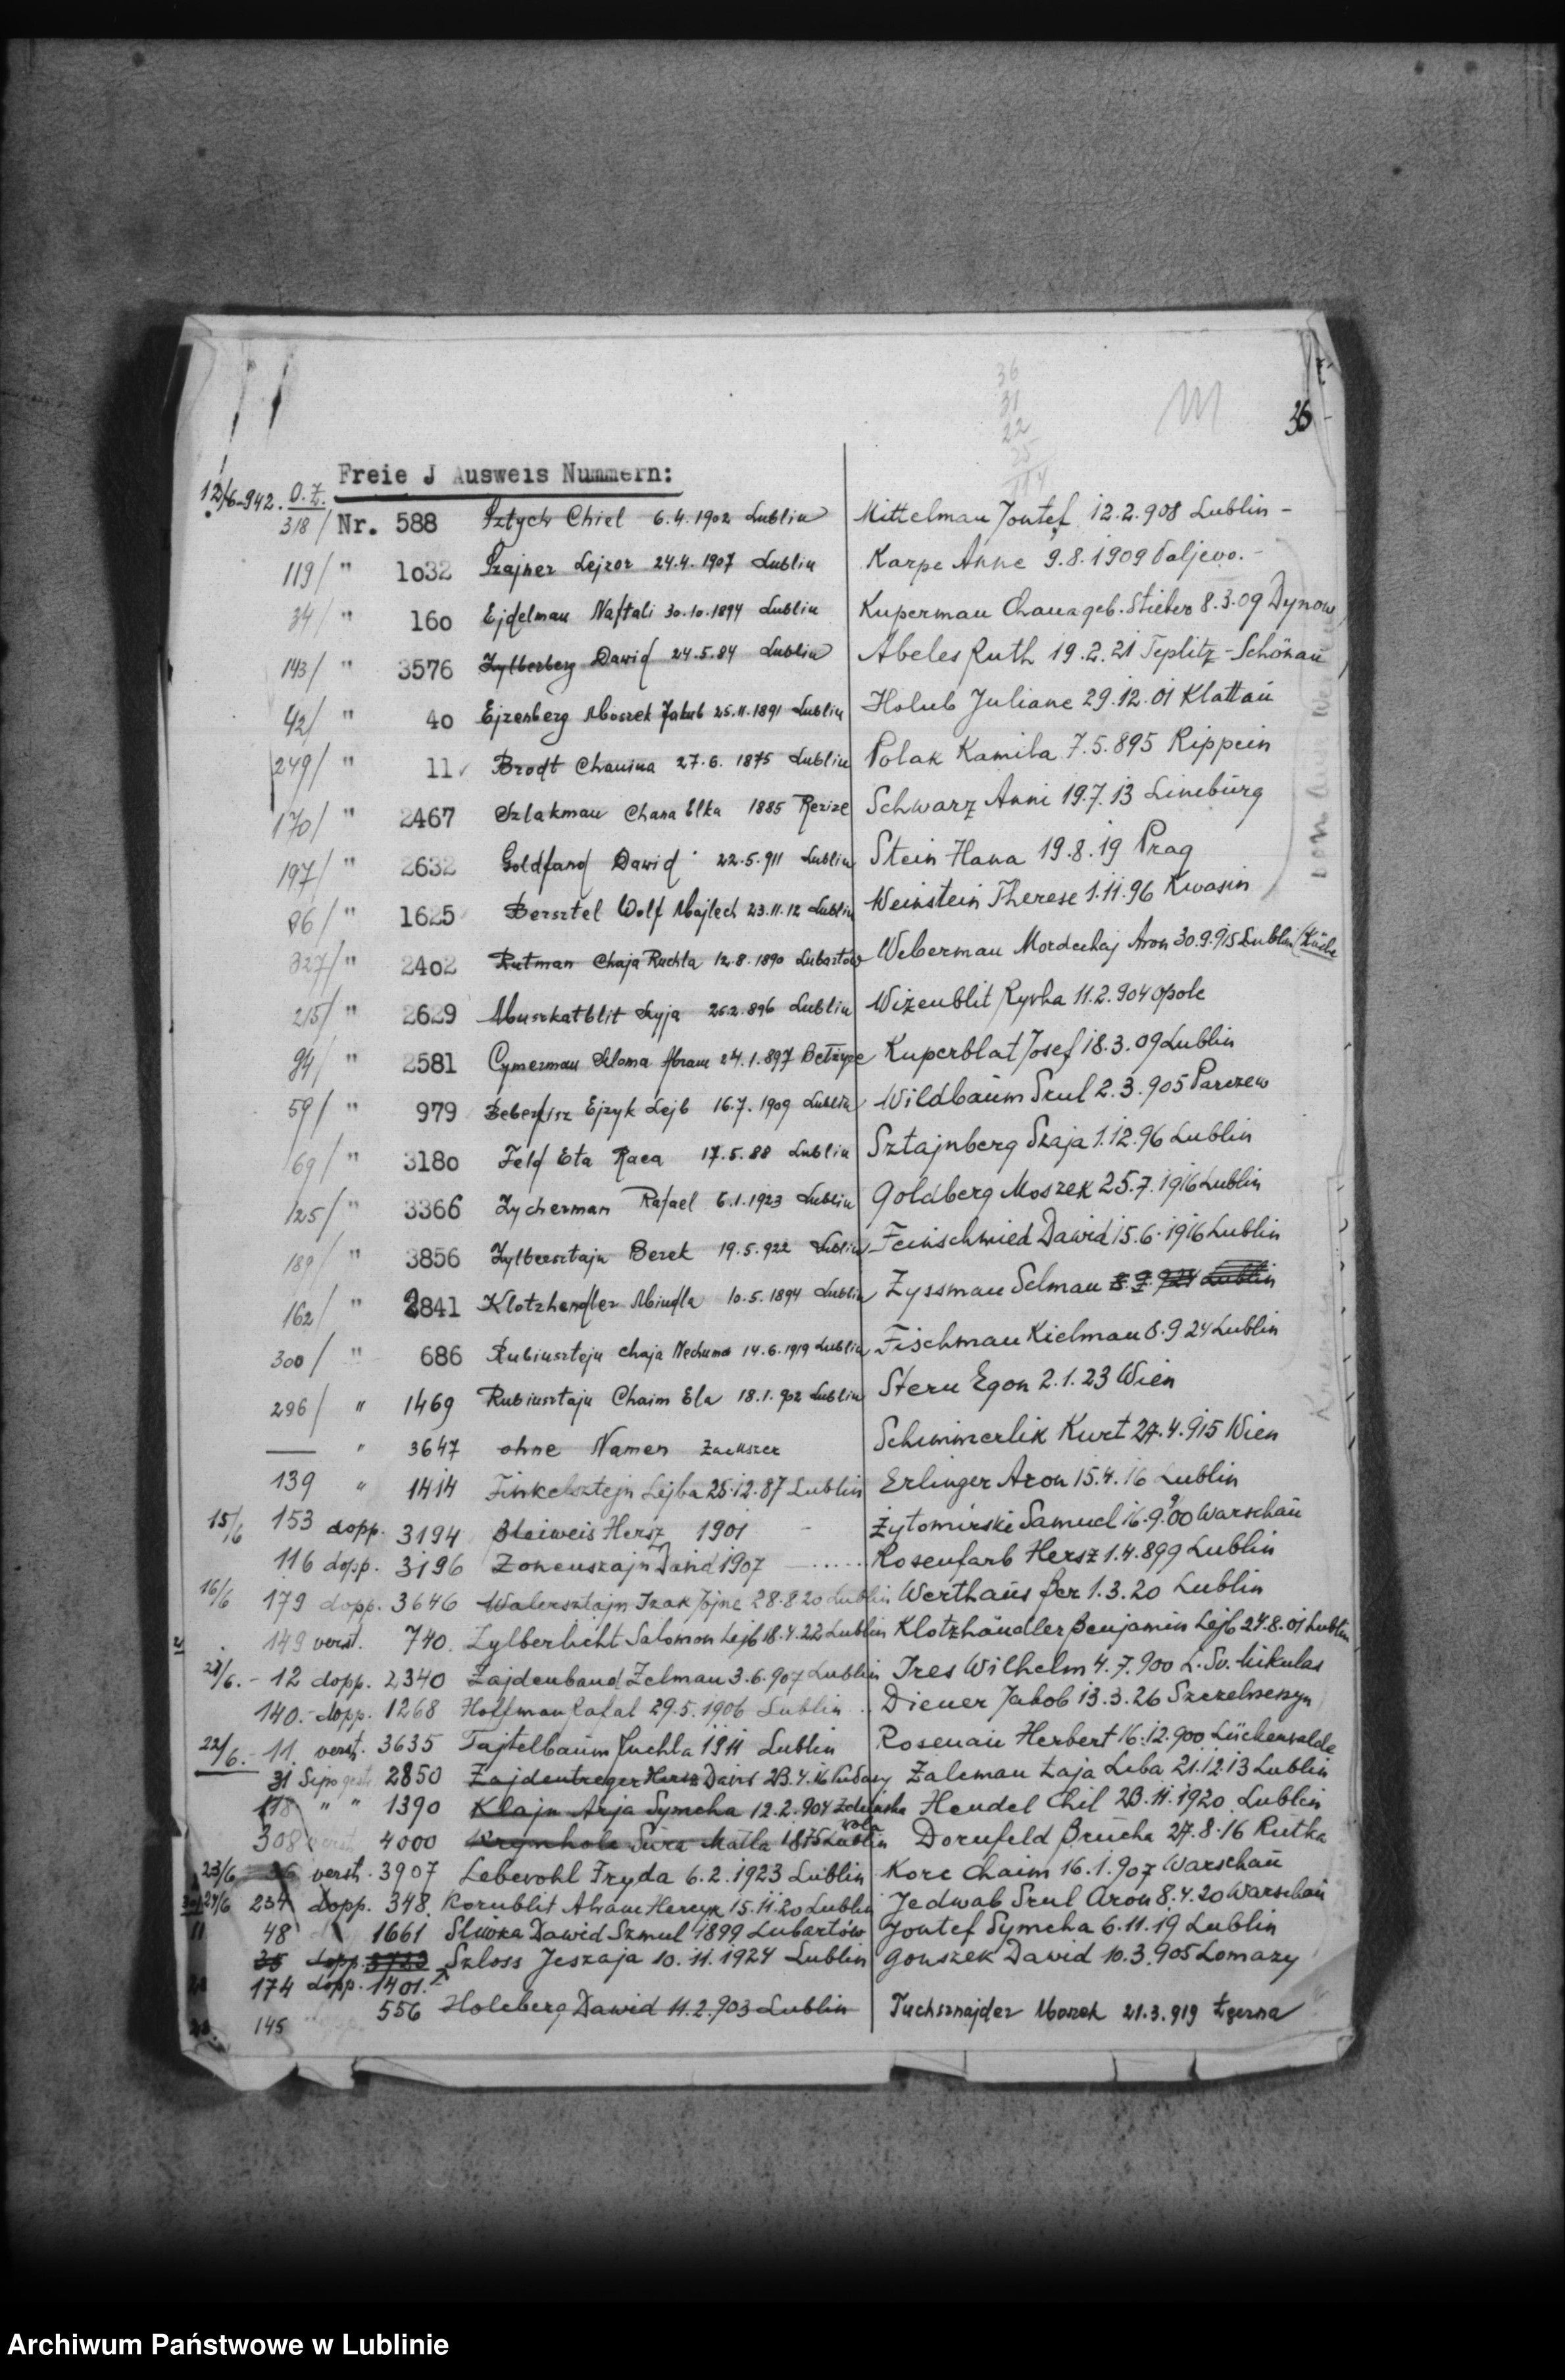 36
31
22
25
114
26
Freie J Ausweis Nummern:
12/6-942. O.Z.
318/ Nr. 588 Sztych Chiel 6.4.1902 Lublin Mittelman Jontef 12.2.908 Lublin -
119/ " 1032 Szajner Lejzor 24.4.1907 Lublin Karpe Anne 9.8.1909 Valjevo. -
34/ " 160 Ejdelman Naftali 30.10.1894 Lublin Kuperman Chana geb. Stieber 8.3.09 Dynow
143/ " 3576 Zylberberg Dawid 24.5.84 Lublin Abeles Ruth 19.2.21 Teplitz-Schönau
42/ " 40 Ejzenberg Moszek Jakub 25.11.1891 Lublin Holub Juliane 29.12.01 Klattau
249/ " 11 Brodt Chanina 27.6.1875 Lublin Polak Kamila 7.5.895 Rippein
170/ " 2467 Szlakman Chana Elka 1885 Schwarz Anni 19.7.13 Lineburg
197/ " 2632 Goldfand Dawid 22.5.911 Lublin Stein Hana 19.8.19 Prag
86/ " 1625 Bersztel Wolf Majlech 23.11.12 Lublin Weinstein Therese 1.11.96 Kwasin
327/ " 2402 Rutman Chaja Ruchla 12.8.1890 Lubartów Weberman Mordechaj Aron 30.9.915 Lublin /Küche
215/ " 2629 Muszkatblit Szyja 25.2.896 Lublin Wiżenblit Ryvka 11.2.904 Opole
94/ " 2581 Cymerman Szloma Abram 24.1.897 Bełżyce Kuperblat Josef 18.3.09 Lublin
59/ " 979 Ejzyk Lejb 16.7.1909 Lublin Wildbaum Srul 2.3.905 Parczew
69/ " 3180 Feld Eta Raca 17.5.88 Lublin Sztajnberg Szaja 1.12.96 Lublin
125/ " 3366 Zycherman Rafael 6.1.1923 Lublin Goldberg Moszek 25.7.1916 Lublin
189/ " 3856 Zylbersztajn Berek 19.5.922 Lublin Feinschmied Dawid 15.6.1916 Lublin
162/ " 2841 Klotzhendler Mindla 10.5.1894 Lublin Zyssman Selman 8.9.924 Lublin
300/ " 686 Rubinsztejn Chaja Nechuma 14.6.1919 Lublin Fischman Kielman 8.9.24 Lublin
296/ " 1469 Rubinsztajn Chaim Ela 18.1.902 Lublin Stern Egon 2.1.23 Wien
— " 3647 ohne Namen Schimmerlik Kurt 24.4.915 Wien
139 " 1414 Finkelsztejn Lejba 25.12.87 Lublin Erlinger Aron 15.4.16 Lublin
15/6 153 dopp. 3194 Bleiweis Hersz 1901 - Żytomirski Samuel 16.9.900 Warschau
116 dopp. 3196 Zonenszajn Dawid 1907 Rosenfarb Hersz 1.4.899 Lublin
16/6 179 dopp. 3646 Walersztajn Izak Jojne 28.8.20 Lublin Werthaus Ber 1.3.20 Lublin
149 verst. 740. Zylberlicht Salomon Lejb 18.4.22 Lublin Klotzhändler Benjamin Lejb 27.8.01 Lublin
21/6. - 12 dopp. 2340 Zajdenband Zelman 3.6.907 Lublin Ires Wilhelm 4.7.900 L. Sv. Mikulas
140.- dopp. 1268 Hoffman Rafal 29.5.1906 Lublin Diener Jakob 13.3.26 Szczebrzeszyn
22/6. - 11. verst. 3635 Tajtelbaum Ruchla 1911 Lublin Rosenau Herbert 16.12.900 Lückenwalde
31 Sipo gest. 2850 Zajdentreger Hersz Dawid 23.4.16 Zaleman Łaja Luba 21.12.13 Lublin
118 " " 1390 Klajn Arja Symcha 12.2.904 Zduńska Wola Hendel Chil 23.11.1920 Lublin
308 verst. 4000 Krymhole Sura Matla 1875 Lublin Dornfeld Brucha 27.8.16 Rutka
23/6 36 verst. 3907 Lebewohl Fryda 6.2.1923 Lublin Korc Chaim 16.1.907 Warschau
24/6 254 dopp. 348. Kornblit Abram Hercyk 15.11.20 Lublin Jedwab Srul Aron 8.4.20 Warschau
11 48 1661 Śliwka Dawid Szmul 1899 Lubartów Jontef Symcha 6.11.19 Lublin
35 dopp. 3723 Szloss Jeszaja 10.11.1924 Lublin Gonszek David 10.3.905 Lomazy
174 dopp. 1401.
145 556 Holcberg Dawid 11.2.903 Lublin Tuchsznajder Moszek 21.3.919
Archiwum Państwowe w Lublinie